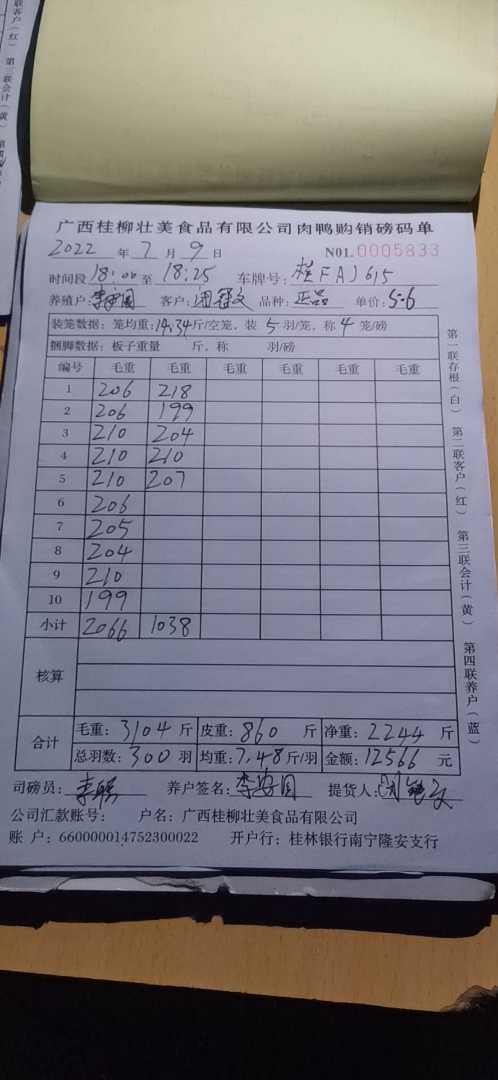 广西桂柳壮美食品有限公司肉鸭购销磅码单
2022 年 7 月 9 日 N01. 0005833
时间段 18:00 至 18:25 车牌号: 桂FAJ615
养殖户: 客户: 品种: 正品 单价: 5.6
装笼数据: 笼均重: 14.34 斤/空笼, 装 5 羽/笼, 称 4 笼/磅
捆脚数据: 板子重量 斤, 称 羽/磅
编号 毛重 毛重 毛重 毛重 毛重 毛重
1 206 218
2 206 199
3 210 204
4 210 210
5 210 207
6 206
7 205
8 204
9 210
10 199
小计 2066 1038
核算
合计
毛重: 3104 斤 皮重: 860 斤 净重: 2244 斤
总羽数: 300 羽 均重: 7.48 斤/羽 金额: 12566 元
司磅员: 养户签名: 提货人:
公司汇款账号: 户名: 广西桂柳壮美食品有限公司
账 户: 660000014752300022 开户行: 桂林银行南宁隆安支行
第一联存根(白) 第二联客户(红) 第三联会计(黄) 第四联养户(蓝)